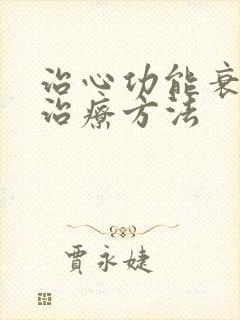 治心功能衰
治療方法
賈永婕